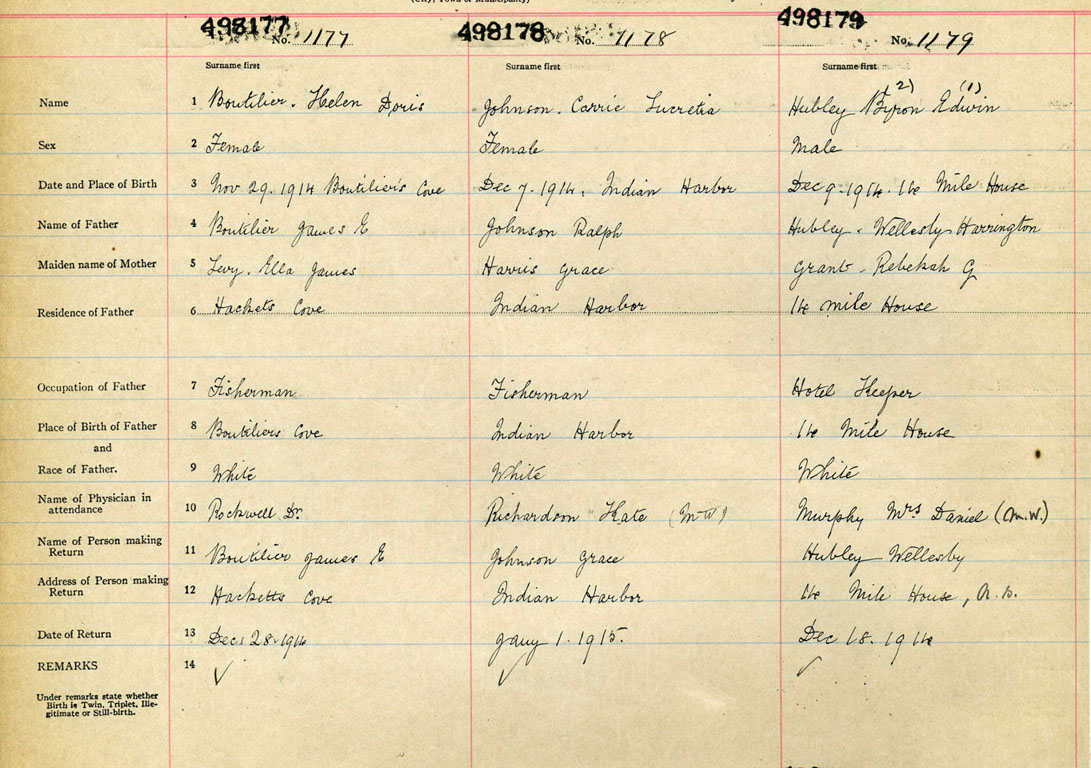 (City, Town or Municipality)
498177 No. 1177 498178 No. 1178 498179 No. 1179
Surname first Surname first Surname first
Name 1 Boutilier. Helen Doris Johnson. Carrie Lucretia Hubley Byron (2) Edwin (1)
Sex 2 Female Female Male
Date and Place of Birth 3 Nov 29. 1914 Boutilier's Cove Dec 7. 1914. Indian Harbor Dec 9. 1914. 14 Mile House
Name of Father 4 Boutilier James E Johnson Ralph Hubley. Wellesby Harrington
Maiden name of Mother 5 Levy. Ella James Harris Grace Grant - Rebekah G
Residence of Father 6 Hackets Cove Indian Harbor 14 mile House
Occupation of Father 7 Fisherman Fisherman Hotel Keeper
Place of Birth of Father 8 Boutiliers Cove Indian Harbor 14 Mile House
and
Race of Father. 9 White White White
Name of Physician in
attendance 10 Rockwell Dr. Richardson Kate (M-W) Murphy Mrs Daniel (M.W.)
Name of Person making
Return 11 Boutilier James E Johnson Grace Hubley Wellesby
Address of Person making
Return 12 Hacketts Cove Indian Harbor 14 Mile House, N.S.
Date of Return 13 Dec. 28. 1914 Jany 1. 1915. Dec 18. 1914
REMARKS 14 ✓ ✓ ✓
Under remarks state whether
Birth is Twin, Triplet, Ille-
gitimate or Still-birth.